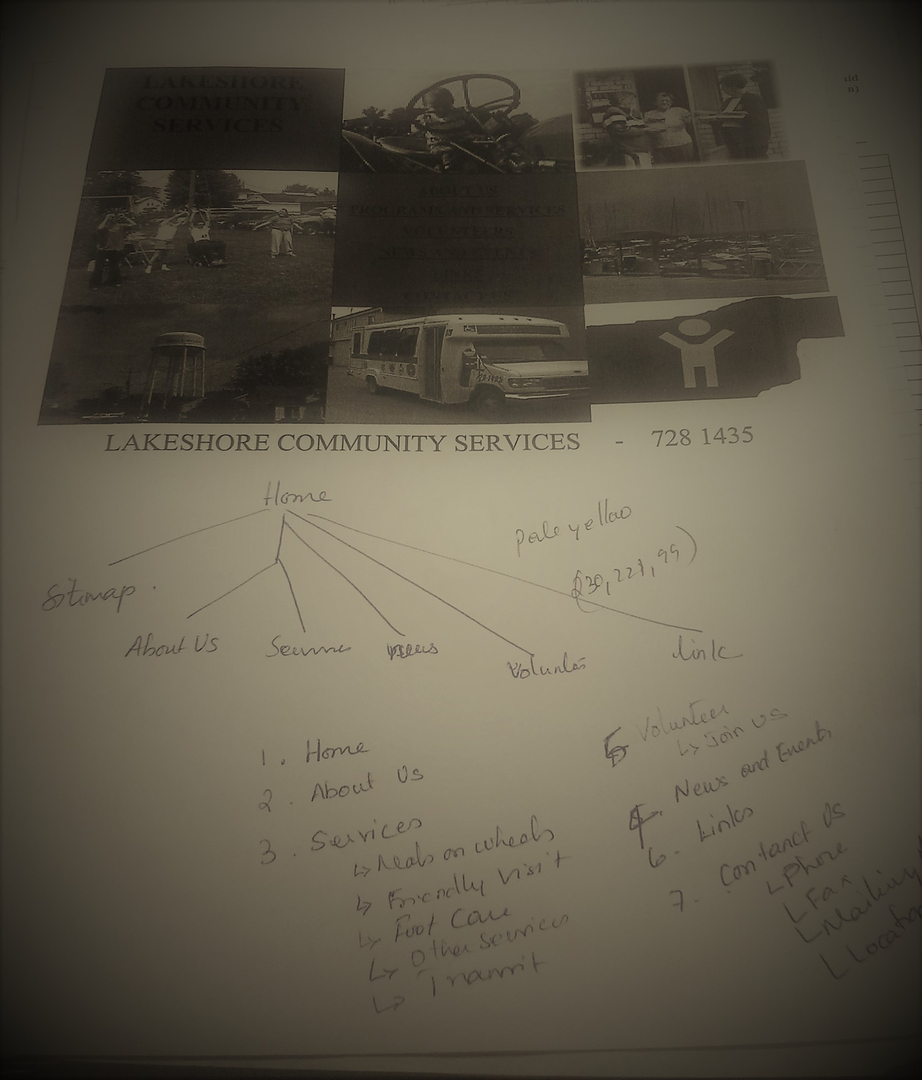 LAKESHORE
COMMUNITY
SERVICES
ABOUT US
PROGRAMS AND SERVICES
VOLUNTEERS
NEWS AND EVENTS
LAKESHORE COMMUNITY SERVICES - 728 1435
Home
pale yellao
Sitimap.
About Us
news
Link
1. Home
2. About Us
3. Services
↳ Meals on wheels
↳ Friendly visit
↳ Foot Care
↳ Other Services
↳ Transit
5 Volunteer
↳ Join US
4. News and Events
6. Links
7. Contanct Us
Phone
Fax
Mailing
Location